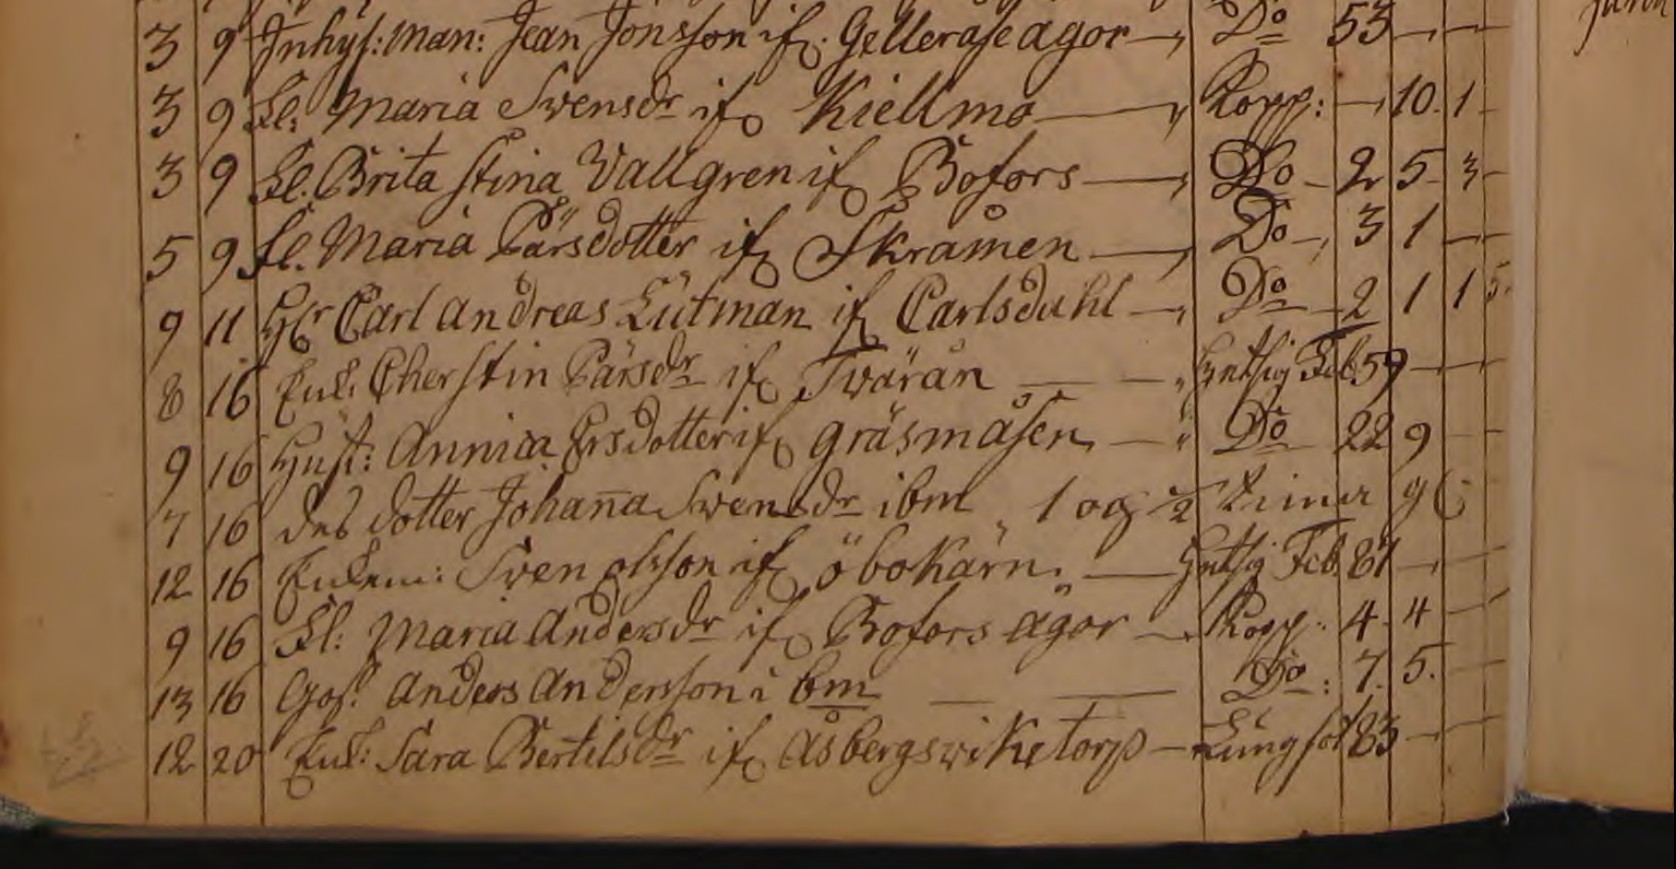 3 9 Inhys: Man: Jean Jonsson if. Gelleråse ägor — Do 53 — —
3 9 Fl: Maria Svensdr if Kiellmo — Kopp: — 10. 1
3 9 Fl. Brita Stina Vallgren if Bofors — Do — 2 5 3
5 9 Fl. Maria Pärsdotter if Skråmen — Do — 3 1 —
9 11 Hr Carl Andreas Lütman if Carlsdahl — Do — 2 1 1 5
8 16 Enk: Cherstin Pärsdr if Tvärån — — Hetsig Feb 59 — —
9 16 Hust: Annica Ersdotter if Gräsmåsen — Do 22 9 —
7 16 des dotter Johanna Svensdr ibm 1 og 1/2 timar 9 6
12 16 Enkem: Sven Olsson if öbokärn. — Hetsig Feb. 81 —
9 16 Fl: Maria Andersdr if Bofors ägor — Kopp: 4 4 —
13 16 Gos. Anders Andersson i bm — — Do: 7. 5. —
12 20 Enk: Sara Bertilsdr if Åsbergswiketorp — Lungsot 83 —